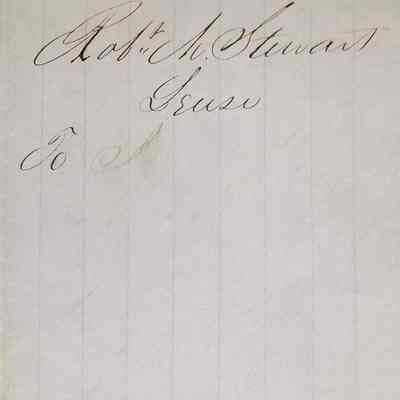 Robt. M. Stewart
Lease
To